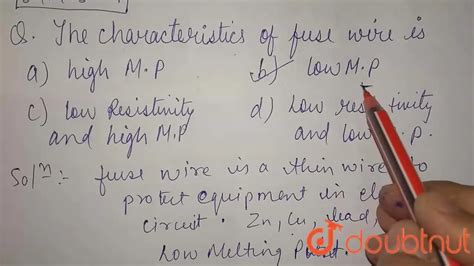 Q. The characteristics of fuse wire is
a) high M.P b) low M.P
c) low Resistivity d) low
and high M.P and P.
Solⁿ:- fuse wire is a thin wire to
protect equipment in
circuit. Zn, Cu, lead,
Low Melting Point.
doubtnut